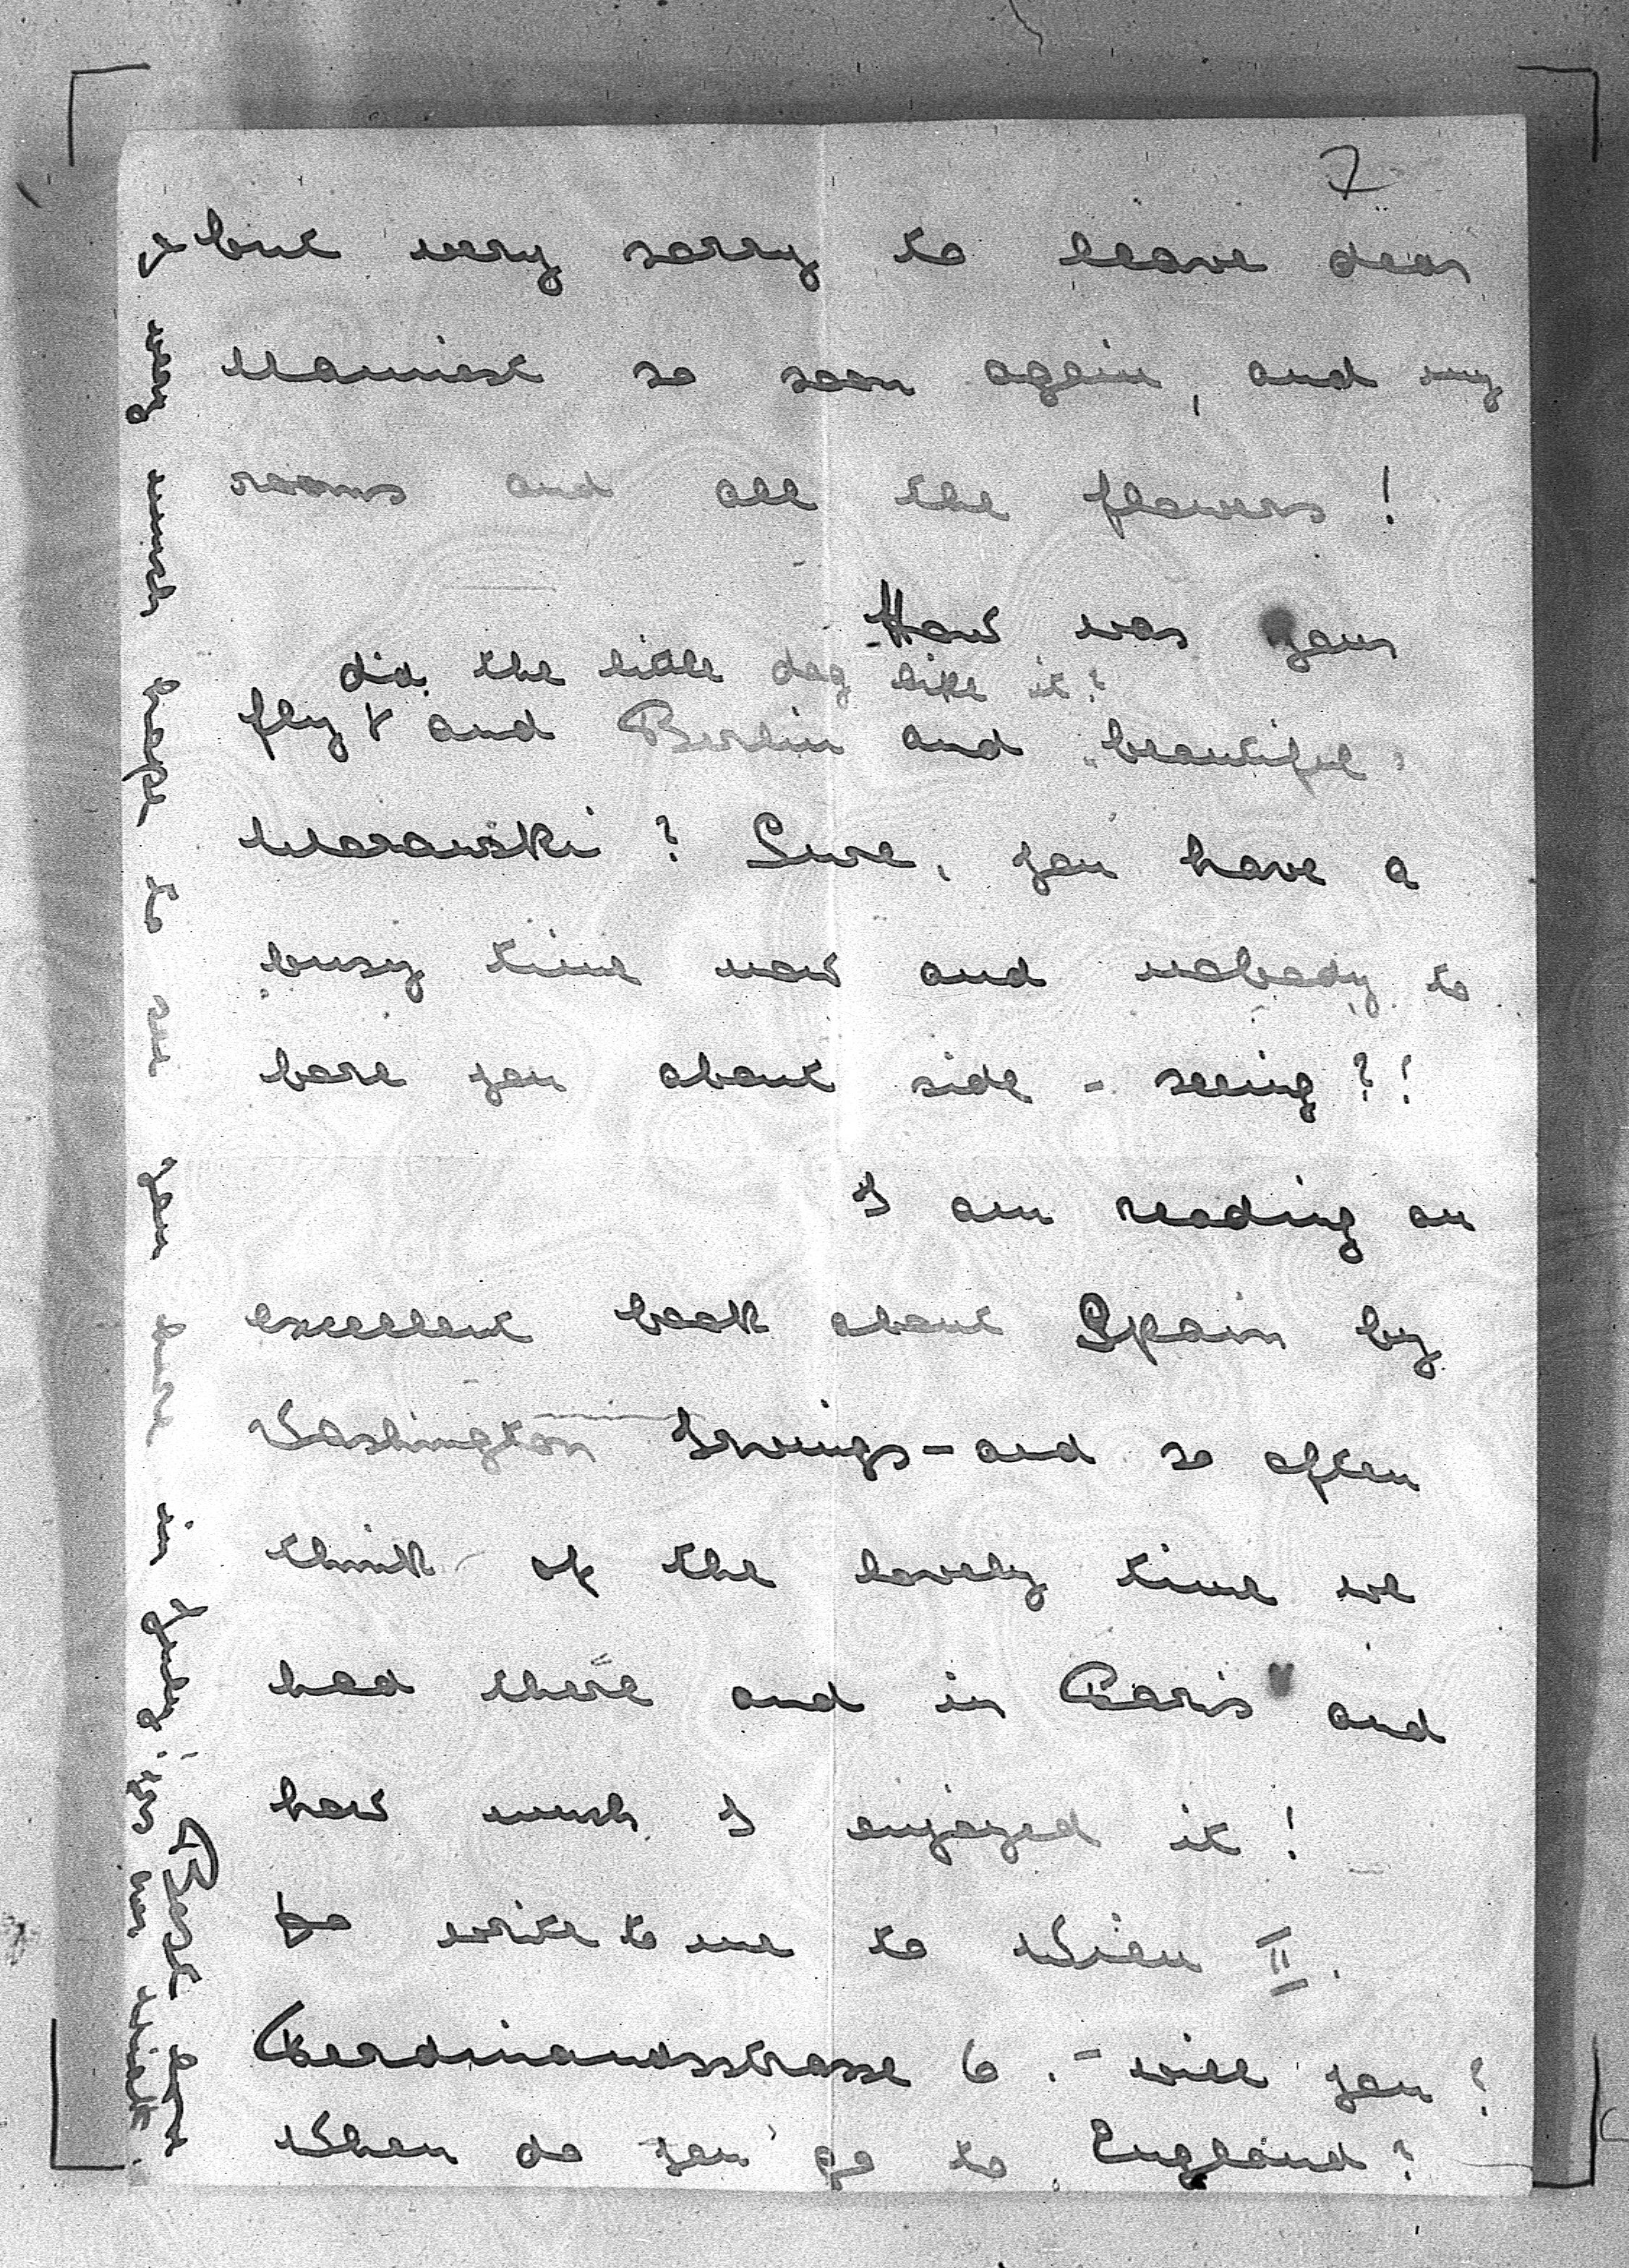 7
but very sorry to leave dear
so soon again, and my
rooms and all the flowers!
How was your
did the little dog like it?
fly & and Berlin and "beautiful"
Morawski? Sure, you have a
busy time now and nobody to
bore you about side-seeing?!
I am reading an
excellent book about Spain by
Washington Irvings - and so often
think of the lovely time we
had there and in Paris and
how much I enjoyed it!
Do write to me to Wien II.
Ferdinandsstrasse 6. - will you?
When do you go to England?
very much to you in